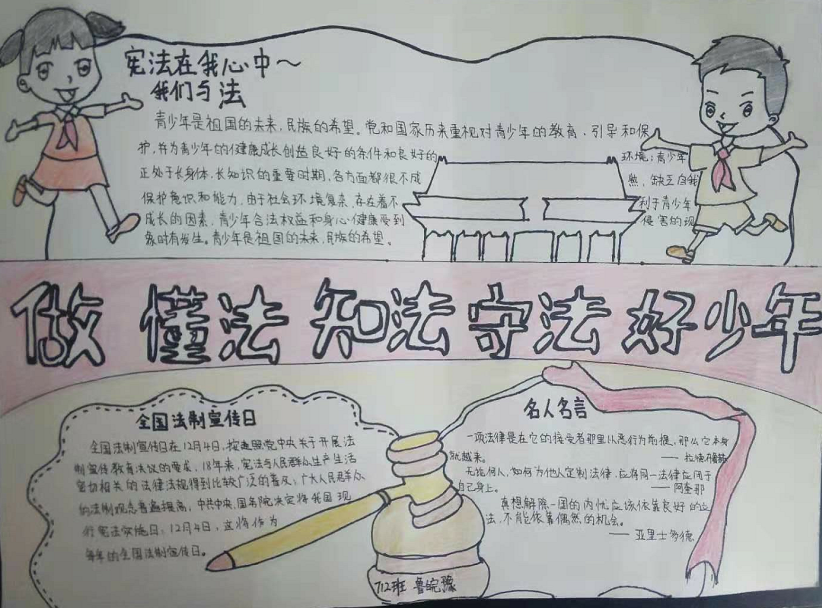 宪法在我心中~
我们与法
青少年是祖国的未来，民族的希望。党和国家历来重视对青少年的教育、引导和保
护，并为青少年的健康成长创造良好的条件和良好的环境；青少年
正处于长身体、长知识的重要时期，各方面都很不成熟、缺乏自我
保护意识和能力，由于社会环境复杂，存在着不利于青少年
成长的因素，青少年合法权益和身心健康受到侵害的现
象时有发生。青少年是祖国的未来，民族的希望。
做懂法知法守法好少年
全国法制宣传日
全国法制宣传日在12月4日，按照党中央关于开展法
制宣传教育决议的要求，18年来，宪法与人民群众生产生活
密切相关的法律法规得到比较广泛的普及，广大人民群众
的法制观念普遍提高，中共中央、国务院决定将我国现
行宪法实施日，12月4日，
每年的全国法制宣传日。
名人名言
一项法律是在它的接受者那里以恶行为前提，那么它本身
就越来。
——
无论何人，如何为他人定制法律，应将同一法律应用于
自己身上。 ——阿奎那
真想解除一国的内忧应该依靠良好的立
法，不能依靠偶然的机会。
——亚里士多德
712班 鲁皖豫